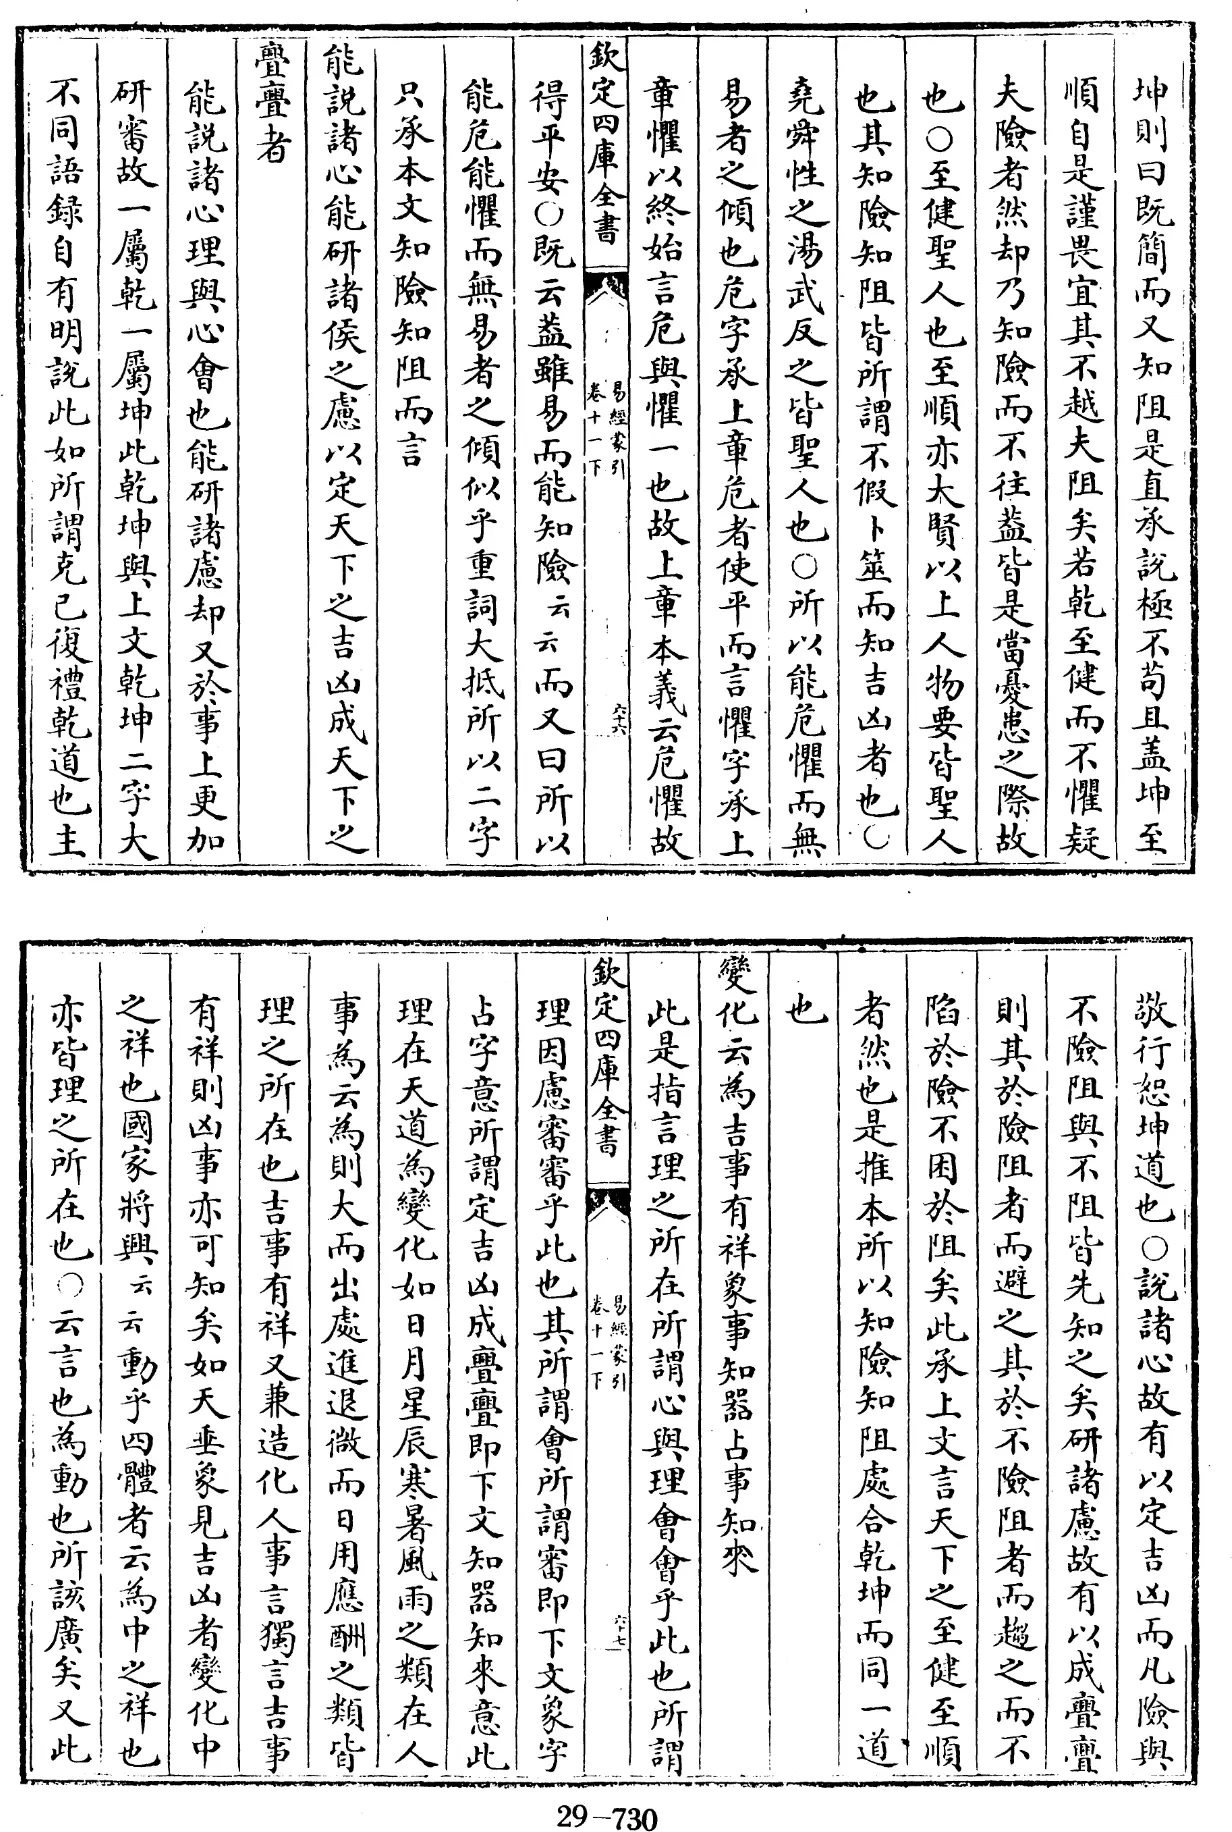 坤則曰既簡而又知阻是直承說極不苟且盖坤至
順自是謹畏宜其不越夫阻矣若乾至健而不懼疑
夫險者然却乃知險而不往葢皆是當憂患之際故
也○至健聖人也至順亦大賢以上人物要皆聖人
也其知險知阻皆所謂不假卜筮而知吉凶者也○
堯舜性之湯武反之皆聖人也○所以能危懼而無
易者之傾也危字承上章危者使平而言懼字承上
章懼以終始言危與懼一也故上章本義云危懼故
欽定四庫全書
易經蒙引
卷十一下
六十六
得平安○既云葢雖易而能知險云云而又曰所以
能危能懼而無易者之傾似乎重詞大抵所以二字
只承本文知險知阻而言
能說諸心能研諸侯之慮以定天下之吉凶成天下之
亹亹者
能說諸心理與心會也能研諸慮却又於事上更加
研審故一屬乾一屬坤此乾坤與上文乾坤二字大
不同語録自有明說此如所謂克己復禮乾道也主
敬行恕坤道也○說諸心故有以定吉凶而凡險與
不險阻與不阻皆先知之矣研諸慮故有以成亹亹
則其於險阻者而避之其於不險阻者而趨之而不
陷於險不困於阻矣此承上文言天下之至健至順
者然也是推本所以知險知阻處合乾坤而同一道
也
變化云為吉事有祥象事知器占事知來
此是指言理之所在所謂心與理會會乎此也所謂
欽定四庫全書
易經蒙引
卷十一下
六十七
理因慮審審乎此也其所謂會所謂審即下文象字
占字意所謂定吉凶成亹亹即下文知器知來意此
理在天道為變化如日月星辰寒暑風雨之類在人
事為云為則大而出處進退微而日用應酬之類皆
理之所在也吉事有祥又兼造化人事言獨言吉事
有祥則凶事亦可知矣如天垂象見吉凶者變化中
之祥也國家將興云云動乎四體者云為中之祥也
亦皆理之所在也○云言也為動也所該廣矣又此
29-730